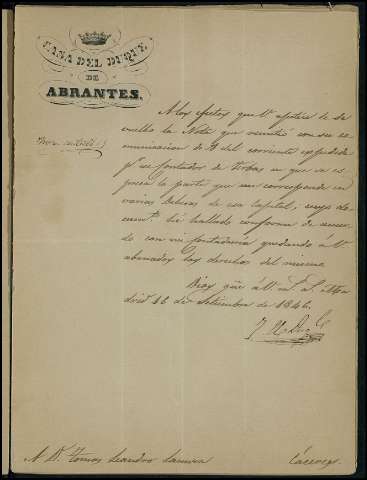 CASA DEL DUQUE
DE
ABRANTES.
A los efectos que V. quiera le de
vuelvo la Nota que remitió con su co
municacion de 9 del corriente espedida
pr. su Contador de Yerbas en que se es
presa la parte que me corresponde en
varias Dehesas de esa Capital, cuyo do
cumto. he hallado conforme de acuer
do con mi Contaduria quedando á V.
abonados los derechos del mismo.
Dios gue. á V. ms. as. Ma
drid 16 de Setiembre de 1846.
A Dn. Tomas Leandro
Cáceres.